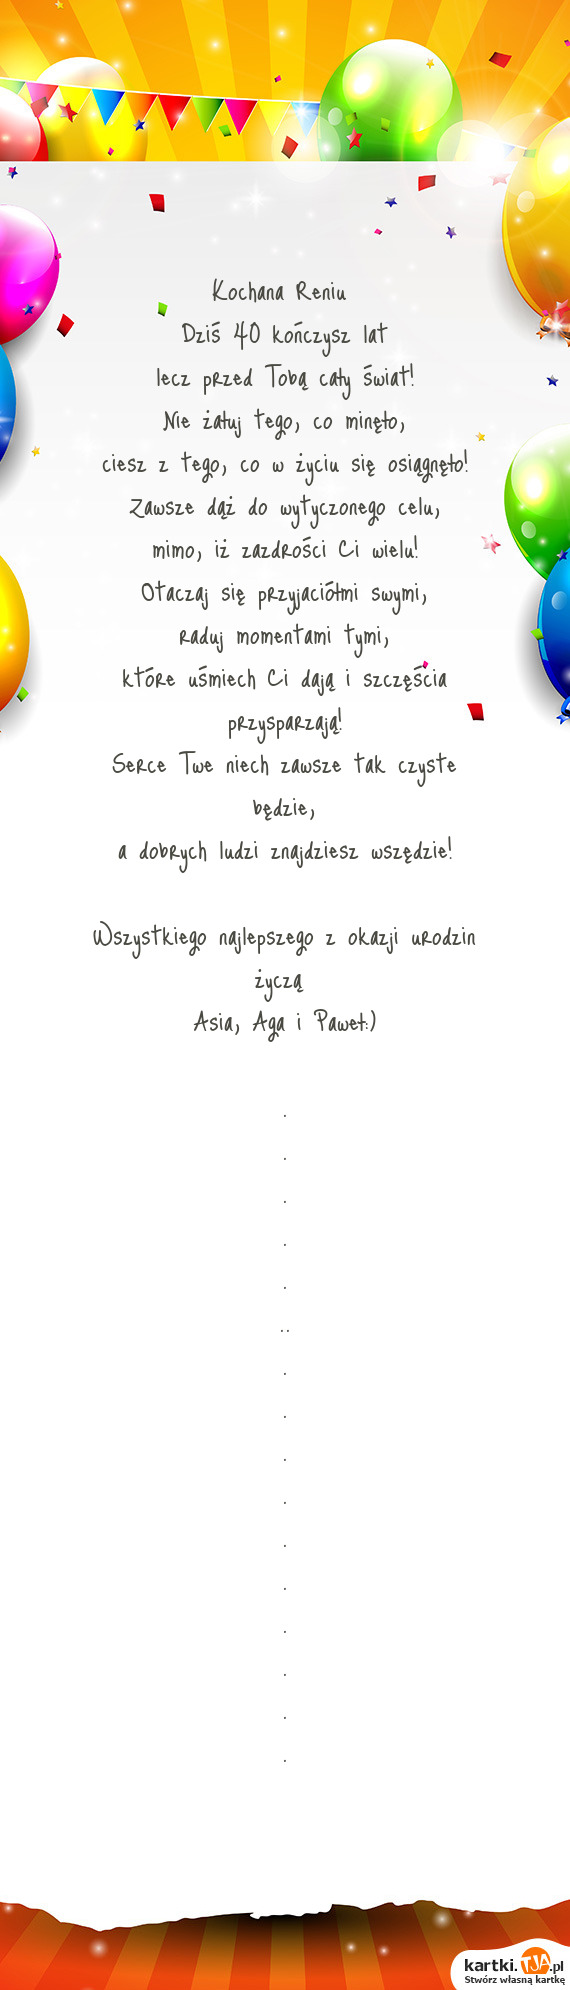 Kochana Reniu
Dziś 40 kończysz lat
lecz przed Tobą cały świat!
Nie żałuj tego, co minęło,
ciesz z tego, co w życiu się osiągnęło!
Zawsze dąż do wytyczonego celu,
mimo, iż zazdrości Ci wielu!
Otaczaj się przyjaciółmi swymi,
raduj momentami tymi,
które uśmiech Ci dają i szczęścia
przysparzają!
Serce Twe niech zawsze tak czyste
będzie,
a dobrych ludzi znajdziesz wszędzie!
Wszystkiego najlepszego z okazji urodzin
życzą
Asia, Aga i Paweł:)
.
.
.
.
.
..
.
.
.
.
.
.
.
.
.
.
kartki.TJA.pl
Stwórz własną kartkę